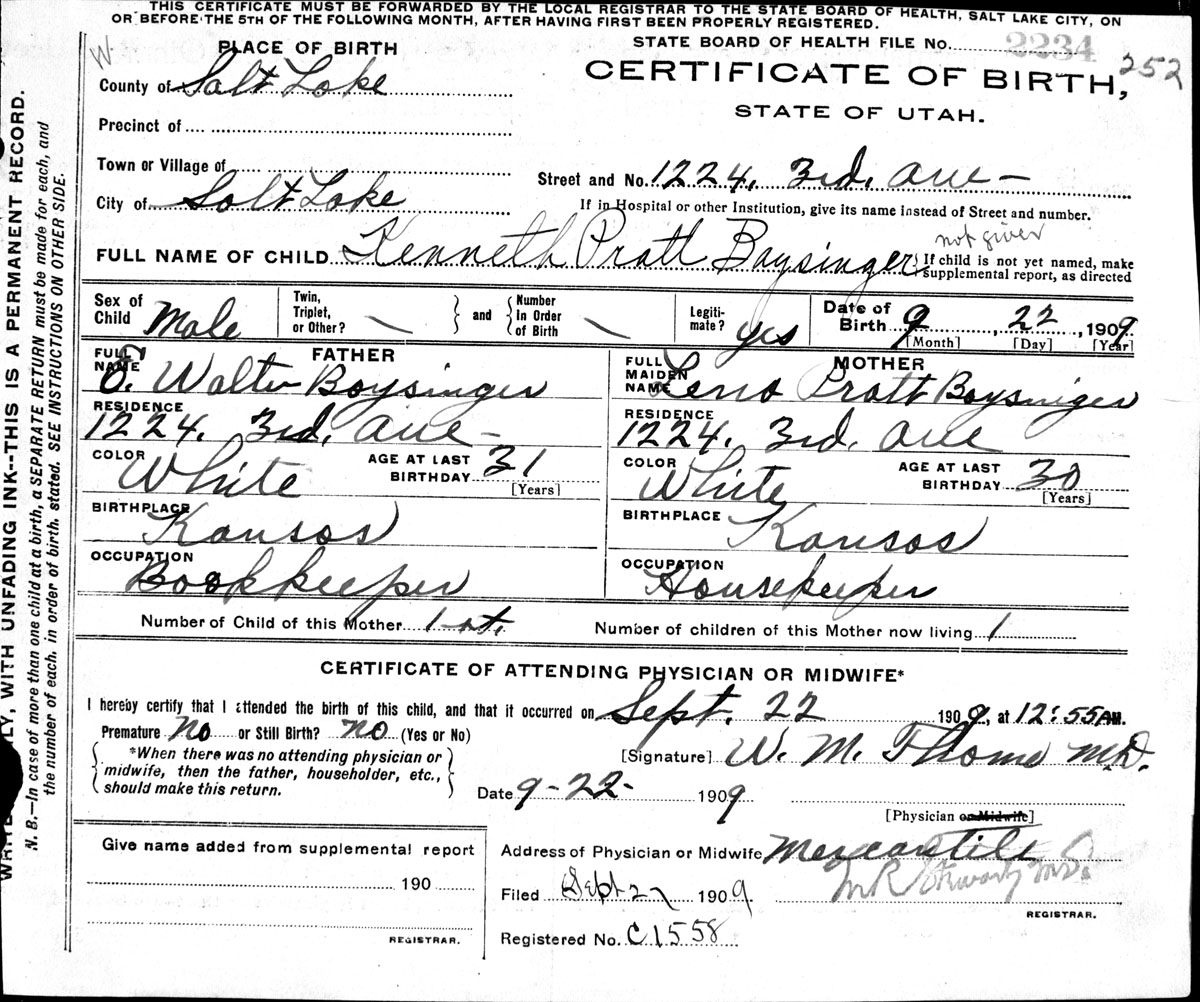 THIS CERTIFICATE MUST BE FORWARDED BY THE LOCAL REGISTRAR TO THE STATE BOARD OF HEALTH, SALT LAKE CITY, ON
OR BEFORE THE 5TH OF THE FOLLOWING MONTH, AFTER HAVING FIRST BEEN PROPERLY REGISTERED.
W
PLACE OF BIRTH
STATE BOARD OF HEALTH FILE No. 2234
252
County of Salt Lake
CERTIFICATE OF BIRTH,
STATE OF UTAH.
Precinct of
Town or Village of
Street and No. 1224. 3rd. Ave -
City of Salt Lake
If in Hospital or other Institution, give its name instead of Street and number.
not given
FULL NAME OF CHILD Kenneth Pratt Baysinger
If child is not yet named, make
supplemental report, as directed
Sex of Child Male
Twin, Triplet, or Other? and Number In Order of Birth
Legitimate? yes
Date of Birth 9, 22, 1909
[Month] [Day] [Year]
FATHER
FULL NAME O. Walter Baysinger
RESIDENCE
1224. 3rd. Ave -
COLOR White
AGE AT LAST BIRTHDAY 31
[Years]
BIRTHPLACE Kansas
OCCUPATION
Bookkeeper
MOTHER
FULL MAIDEN NAME Lena Pratt Baysinger
RESIDENCE
1224. 3rd. Ave
COLOR White
AGE AT LAST BIRTHDAY 30
[Years]
BIRTHPLACE Kansas
OCCUPATION
Housekeeper
Number of Child of this Mother 1st.
Number of children of this Mother now living 1
CERTIFICATE OF ATTENDING PHYSICIAN OR MIDWIFE*
I hereby certify that I attended the birth of this child, and that it occurred on Sept. 22 1909, at 12:55 AM.
Premature No or Still Birth? No (Yes or No)
*When there was no attending physician or
midwife, then the father, householder, etc.,
should make this return.
[Signature] W. M. Thome M.D.
Date 9-22- 1909
[Physician or Midwife]
Give name added from supplemental report
190
REGISTRAR.
Address of Physician or Midwife Mercantile
Filed Sept 27 1909
REGISTRAR.
Registered No. C1558
WITH UNFADING INK--THIS IS A PERMANENT RECORD.
N. B.—In case of more than one child at a birth, a SEPARATE RETURN must be made for each, and
the number of each, in order of birth, stated. SEE INSTRUCTIONS ON OTHER SIDE.